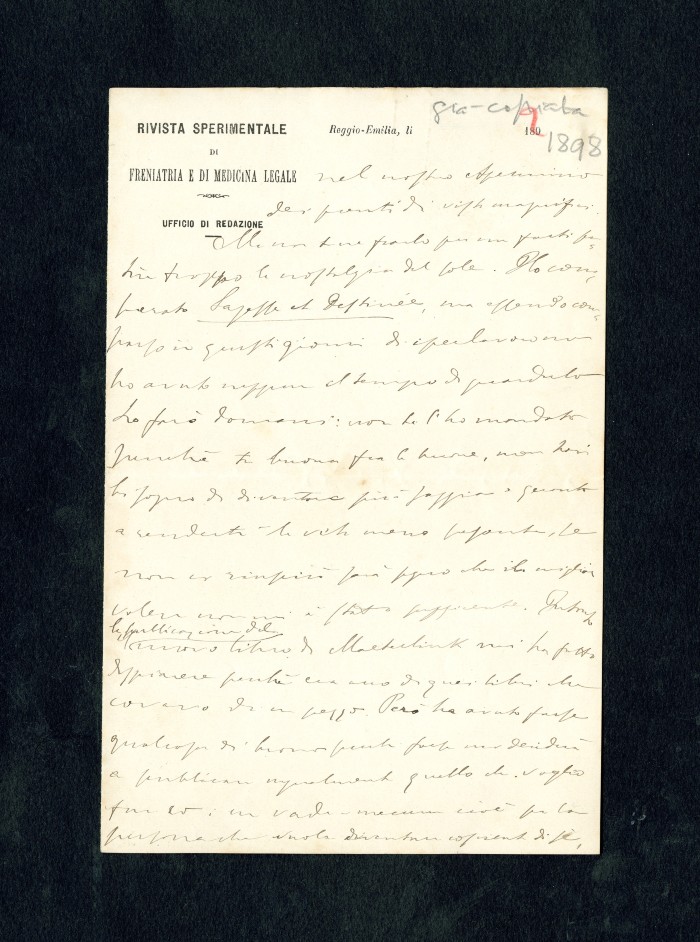 già-copiata
RIVISTA SPERIMENTALE
DI
FRENIATRIA E DI MEDICINA LEGALE
UFFICIO DI REDAZIONE
Reggio-Emilia, li 189
1898
nel nostro Apennino
dei punti di vista magnifici.
Ma non
troppo la nostalgia del sole. Ho com-
perato Sagesse et Destinée, ma essendo com-
parso in questi giorni di non
ho avuto neppure il tempo di guardarlo
Lo farò domani: non te l'ho mandato
perchè tu buona fra le buone, non hai
bisogno di diventare più saggia e quanto
a renderti la vita meno pesante, se
non ci riuscirò sarà segno che il miglior
volere non mi è stato sufficiente.
la pubblicazione del
nuovo libro di Maeterlink mi ha fatto
dispiacere perchè era uno di quei libri che
covavo da un pezzo. Però ha avuto forse
qualcosa di buono perchè forse mi deciderà
a publicare quello che voglio
fare io: un vade-mecum cioè per la
persona che vuole diventare cosciente di sè,